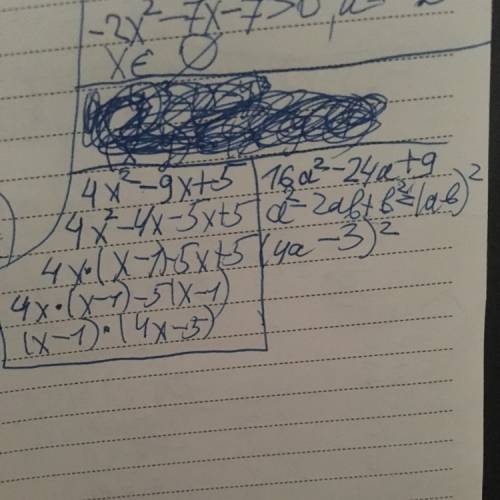 -2x² - 7x - 7 > 0
x ∈ ∅
4x² - 9x + 5
4x² - 4x - 5x + 5
4x • (x - 1) - 5x + 5
4x • (x - 1) - 5(x - 1)
(x - 1) • (4x - 5)
16a² - 24a + 9
a² - 2ab + b² = (a-b)²
(4a - 3)²